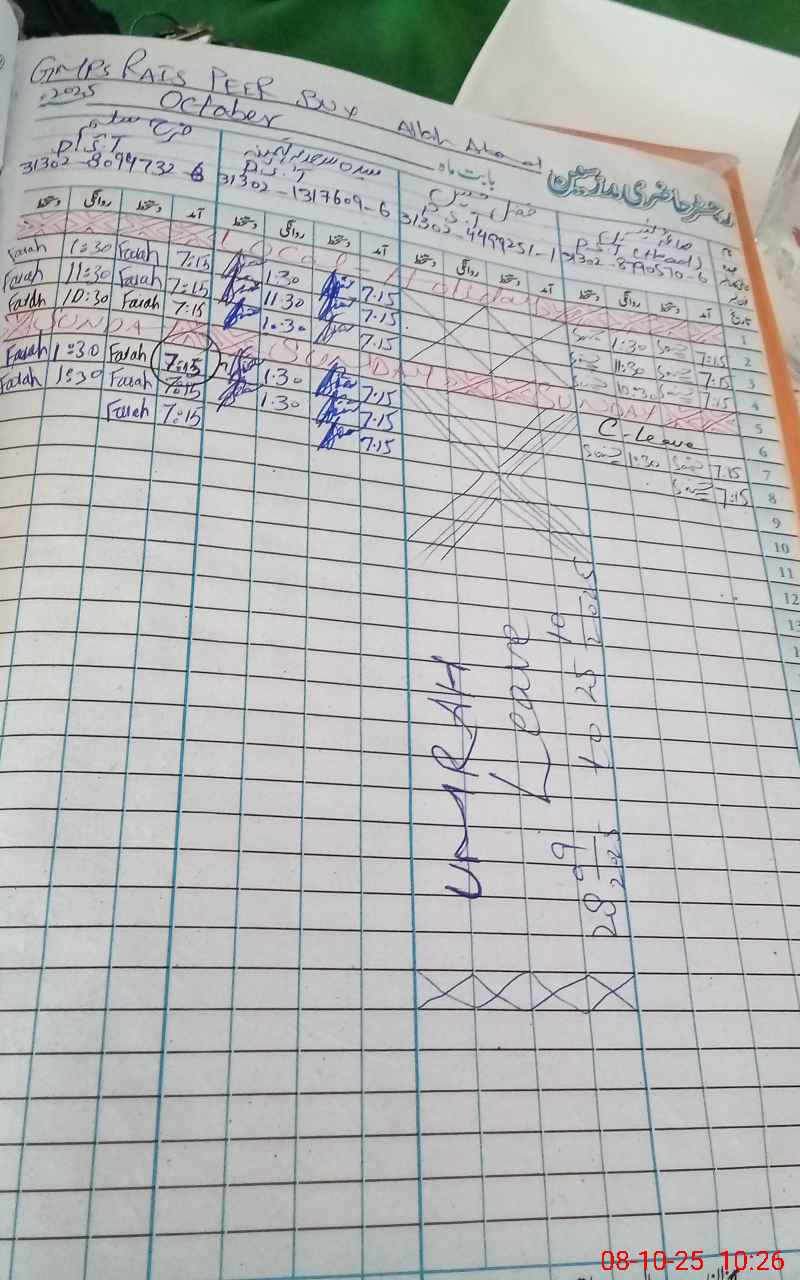 GMPS RAIS PEER BUX Allah Ahmad
2025 October
رجسٹر حاضری مدرسین
بابت ماہ
P.S.T
31302-8094732-6
P.S.T
31302-1317609-6
P.S.T
31302-4499251-1
(Head)
31302-8790570-6
دستخط روانگی دستخط آمد دستخط روانگی دستخط آمد دستخط روانگی دستخط آمد دستخط روانگی دستخط آمد تاریخ
Local Holiday 1
Farah 1:30 Farah 7:15 1:30 7:15 1:30 7:15 2
Farah 11:30 Farah 7:15 11:30 7:15 11:30 7:15 3
Farah 10:30 Farah 7:15 10:30 7:15 10:30 7:15 4
SUNDAY SUNDAY SUNDAY 5
Farah 1:30 Farah 7:15 1:30 7:15 C-Leave 6
Farah 1:30 Farah 7:15 1:30 7:15 1:30 7:15 7
Farah 7:15 7:15 7:15 8
9
10
11
12
UMRAH
Leave
28 9 2025 to 25 10 2025
08-10-25 10:26